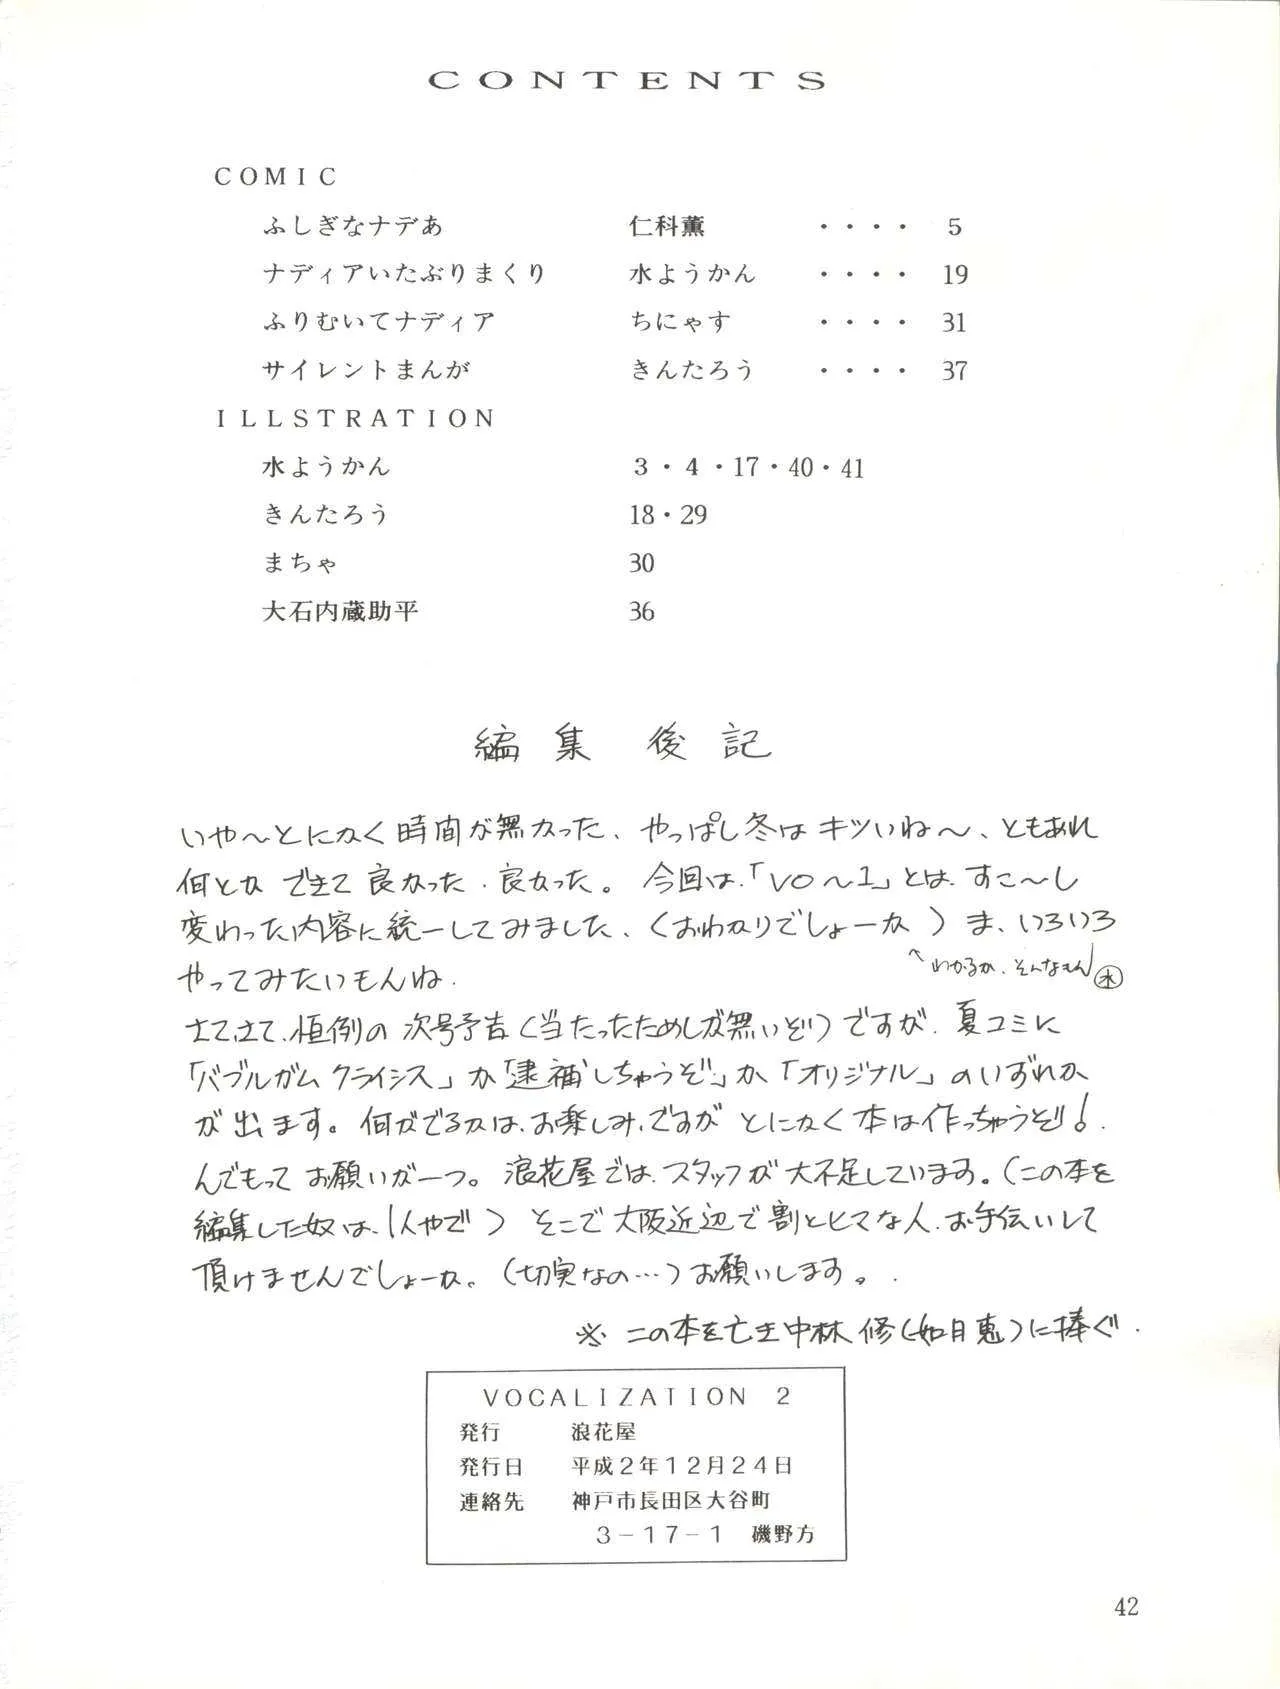 CONTENTS
COMIC
ふしぎなナデあ 仁科薫 ・・・・ 5
ナディアいたぶりまくり 水ようかん ・・・・ 19
ふりむいてナディア ちにゃす ・・・・ 31
サイレントまんが きんたろう ・・・・ 37
ILLSTRATION
水ようかん 3・4・17・40・41
きんたろう 18・29
まちゃ 30
大石内蔵助平 36
編集後記
いや〜とにかく時間が無かった、やっぱし冬はキツいね〜、ともあれ
何とか できて良かった、良かった。今回は、「VO〜1」とは、すこ〜し
変わった内容に統一してみました、(おわかりでしょーか)ま、いろいろ
↑わかるか、そんなもん 水
やってみたいもんね.
さてさて、恒例の次号予告(当たったためしが無いぞ)ですが、夏コミに
「バブルガムクライシス」か「逮捕しちゃうぞ」か「オリジナル」のいずれか
が出ます。何がでるかは、お楽しみ、ですが とにかく本は作っちゃうぞ!
んでもって お願いが一つ。浪花屋では、スタッフが大不足しています。(この本を
編集した奴は、1人やで)そこで大阪近辺で割とヒマな人、お手伝いして
頂けませんでしょーか。(切実なの…)お願いします。
※この本を亡き中林 修(如月恵)に捧ぐ.
VOCALIZATION 2
発行 浪花屋
発行日 平成2年12月24日
連絡先 神戸市長田区大谷町
3-17-1 磯野方
42